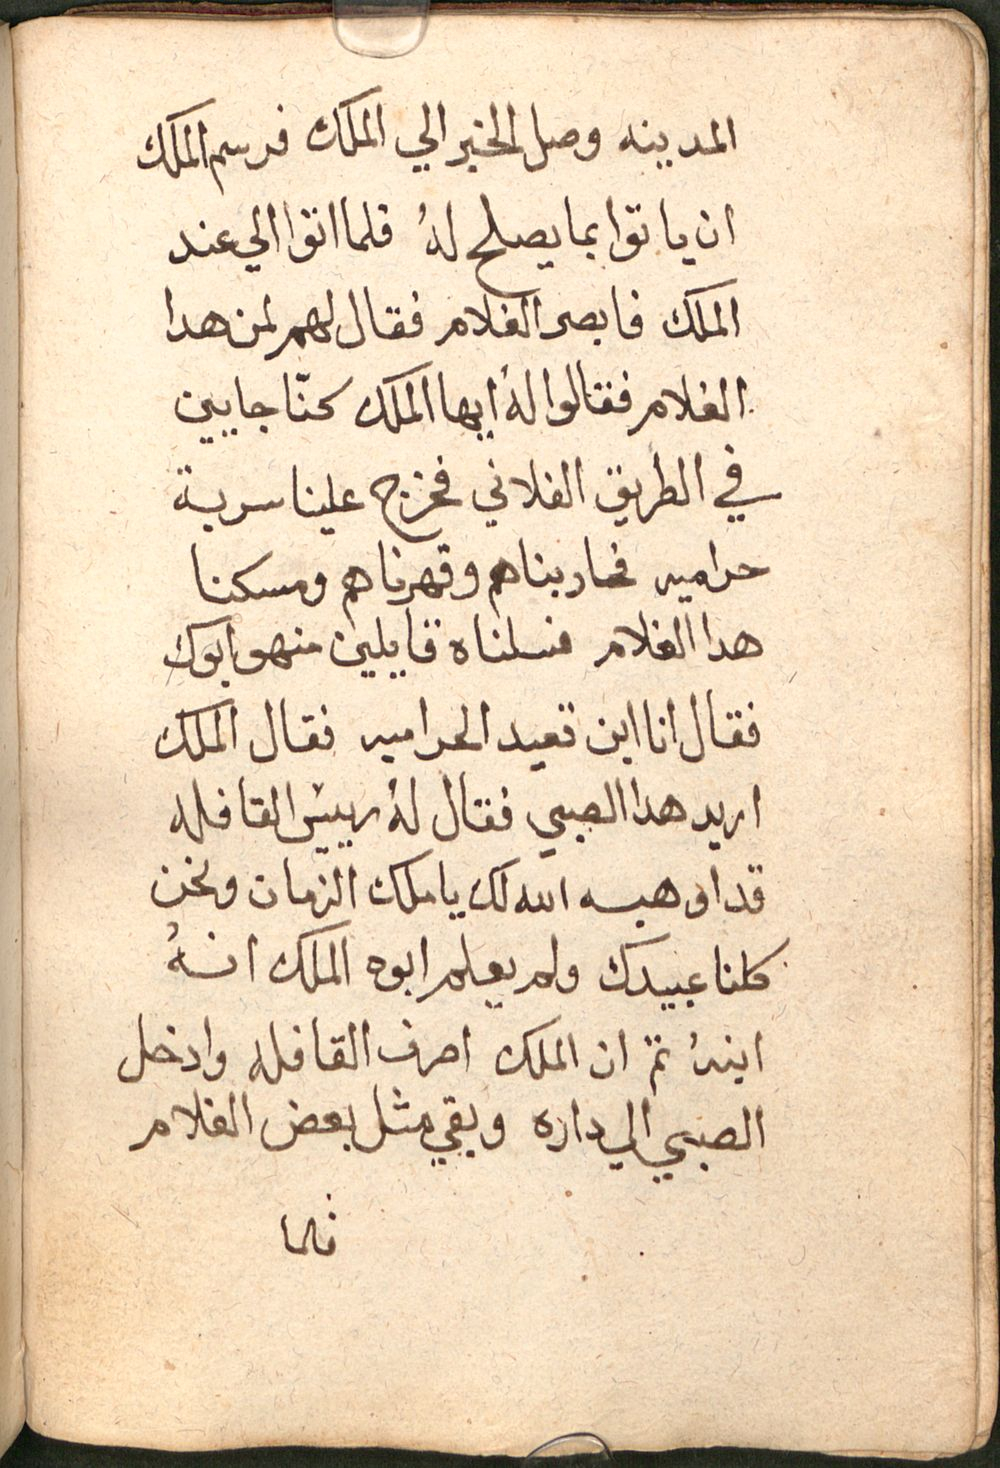 المدينه وصل الخبر الي الملك فرسم الملك
ان ياتوا بما يصلح لهُ فلما اتوا الي عند
الملك فابصر الغلام فقال لهم لمن هدا
الغلام فقالوا لهُ ايها الملك كنّا جايين
في الطريق الفلاني فخرج علينا سربة
حراميه فحاربناهم وقهرناهم ومسكنا
هدا الغلام فسلناه قايلين منهو ابوك
فقال انا ابن قعيد الحراميه فقال الملك
اريد هدا الصبي فقال لهُ رييس القافله
قد اوهبه الله لك يا ملك الزمان ونحن
كلنا عبيدك ولم يعلم ابوه الملك انهُ
ابنهُ ثم ان الملك اصرف القافله وادخل
الصبي الي داره وبقي مثل بعض الغلام
فلما